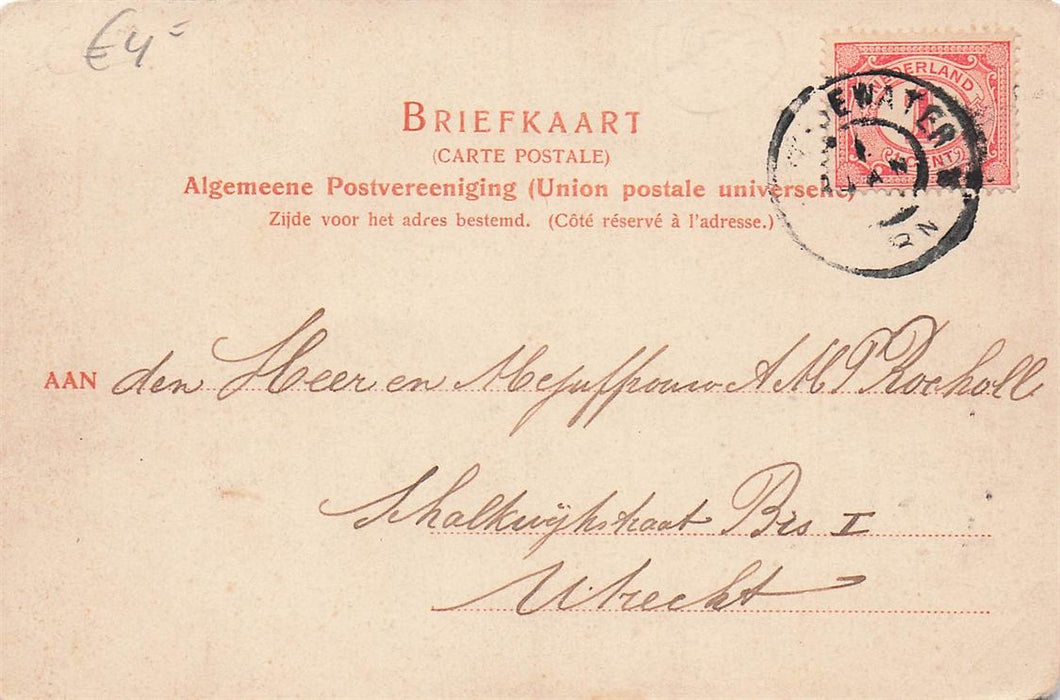 €4=
NEDERLAND
1
CENT
BRIEFKAART
(CARTE POSTALE)
Algemeene Postvereeniging (Union postale universelle)
Zijde voor het adres bestemd. (Côté réservé à l'adresse.)
AAN den Heer en Mejuffrouw A M P Rocholl
Schalkwijkstraat Bis I
Utrecht